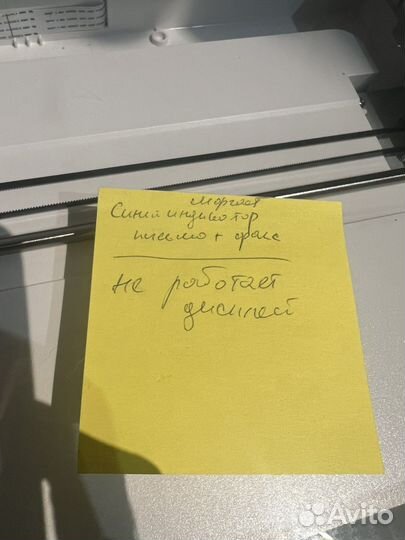 моргает
Синий индикатор
письмо + факс
не работает
дисплей
Avito